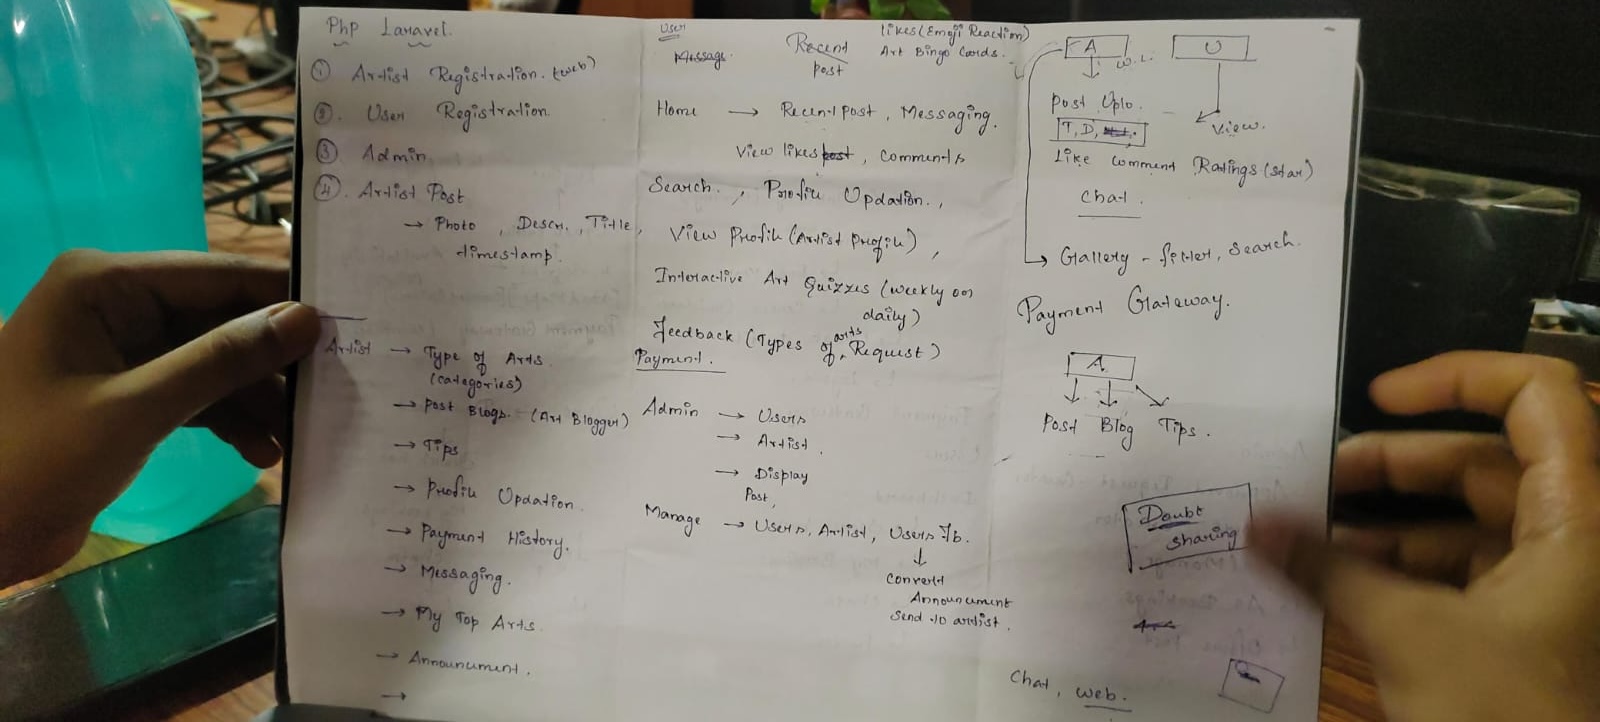 Php Laravel.
① Artist Registration. (web)
②. User Registration
③ Admin
④. Artist Post
→ Photo, Descr., Title,
timestamp.
Artist → Type of Arts.
(categories)
→ Post Blogs. (Art Blogger)
→ Tips
→ Profile Updation.
→ Payment History.
→ Messaging.
→ My Top Arts.
→ Announcement.
→
User
Message.
Recent
post
Likes (Emoji Reaction)
Art Bingo Cards.
Home → Recent post, Messaging.
View likes post, comments
Search., Profile Updation.,
View Profile (Artist profile),
Interactive Art Quizzes (weekly or
daily)
Feedback (Types of arts, Request)
Payment.
Admin → Users
→ Artist.
→ Display
Post,
Manage → Users, Artist, Users Fb.
↓
Convert
Announcement
Send to artist.
A
W.L.
U
Post Uplo.
View.
T, D,
Like comment Ratings (star)
Chat.
Gallery - filter, Search.
Payment Gateway.
A
Post Blog Tips.
Doubt
sharing
Chat, web.